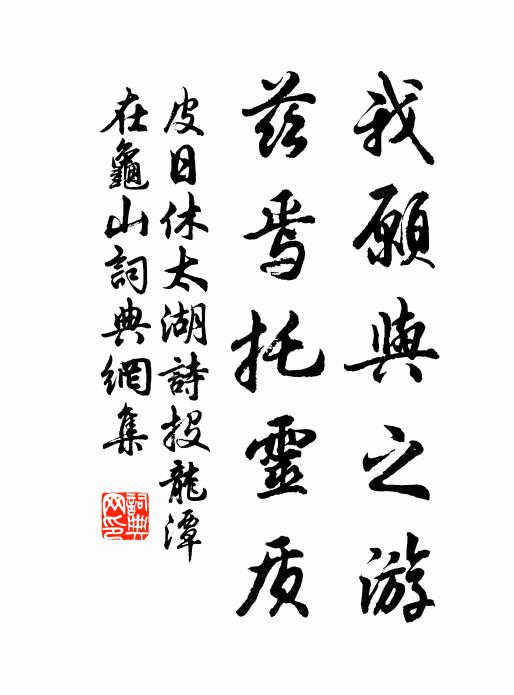 我願與之游
茲焉托靈质
皮日休太湖詩投龍潭
在龜山詞典網集
詞典网印